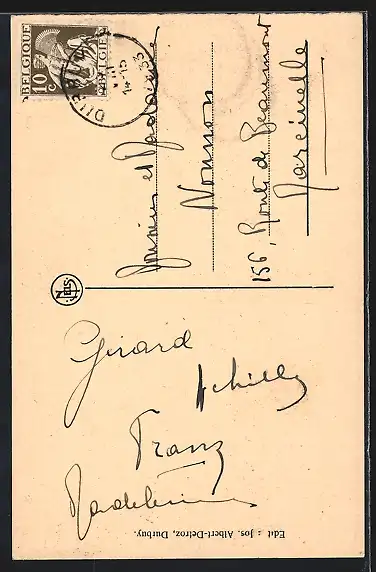 BELGIQUE
10 c
BELGIË
DURBUY
14-15
33
Monsieur et Madame
Nonnon
156, Route de Beaumont
Marcinelle
NELS
Girard
Achille
Franz
Madeleine
Edit : Jos. Albert-Detroz, Durbuy.